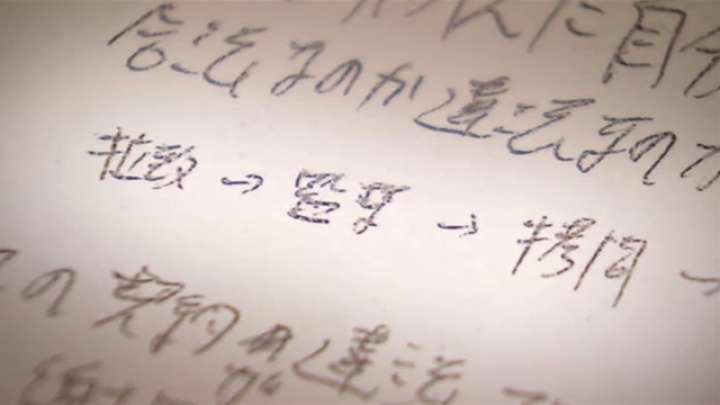 んだ自分
合法なのか違法なのか
拉致→監禁→拷問→
の契約が違法